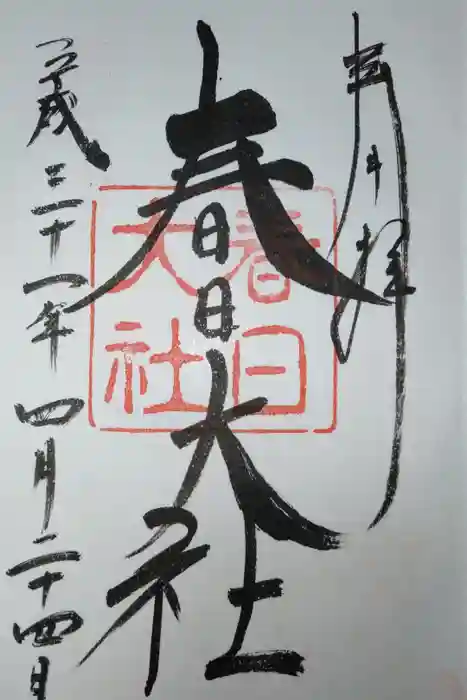 拝
春日大社
春日
大社
平成三十一年四月二十四日